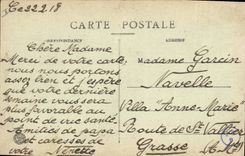 Ce 22 2 18
CARTE POSTALE
CORRESPONDANCE
ADRESSE
Chère Madame
Merci de votre carte
nous nous portons
assez bien et j'espère
que votre dernière
semaine vous sera
plus favorable au
point de vue santé
Amitiés de papa
et caresses de
votre Nénette
Madame Garcin
Navelle
Villa Anne-Marie
Route de St Vallier
Grasse